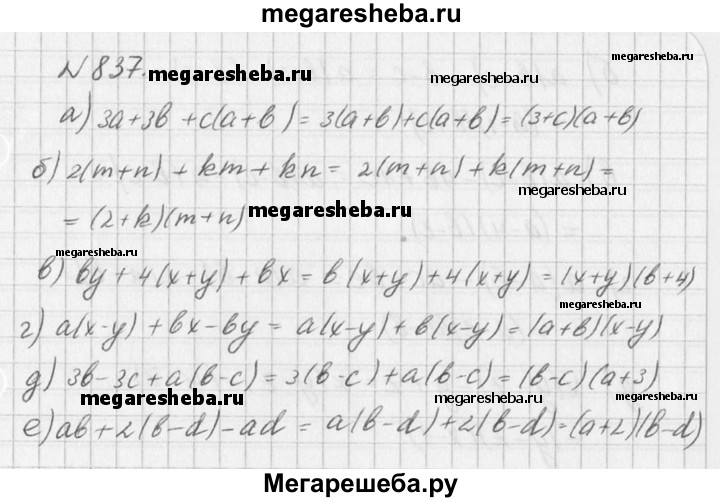 megaresheba.ru
N 837.
megaresheba.ru
megaresheba.ru
megaresheba.ru
а) 3a+3b+c(a+b)=3(a+b)+c(a+b)=(3+c)(a+b)
megaresheba.ru
б) 2(m+n)+km+kn= 2(m+n)+k(m+n)=
megaresheba.ru
=(2+k)(m+n)
megaresheba.ru
megaresheba.ru
в) by+4(x+y)+bx=b(x+y)+4(x+y)=(x+y)(b+4)
megaresheba.ru
г) a(x-y)+bx-by=a(x-y)+b(x-y)=(a+b)(x-y)
д) 3b-3c+a(b-c)=3(b-c)+a(b-c)=(b-c)(a+3)
megaresheba.ru
megaresheba.ru
е) ab+2(b-d)-ad = a(b-d)+2(b-d)=(a+2)(b-d)
Мегарешеба.ру